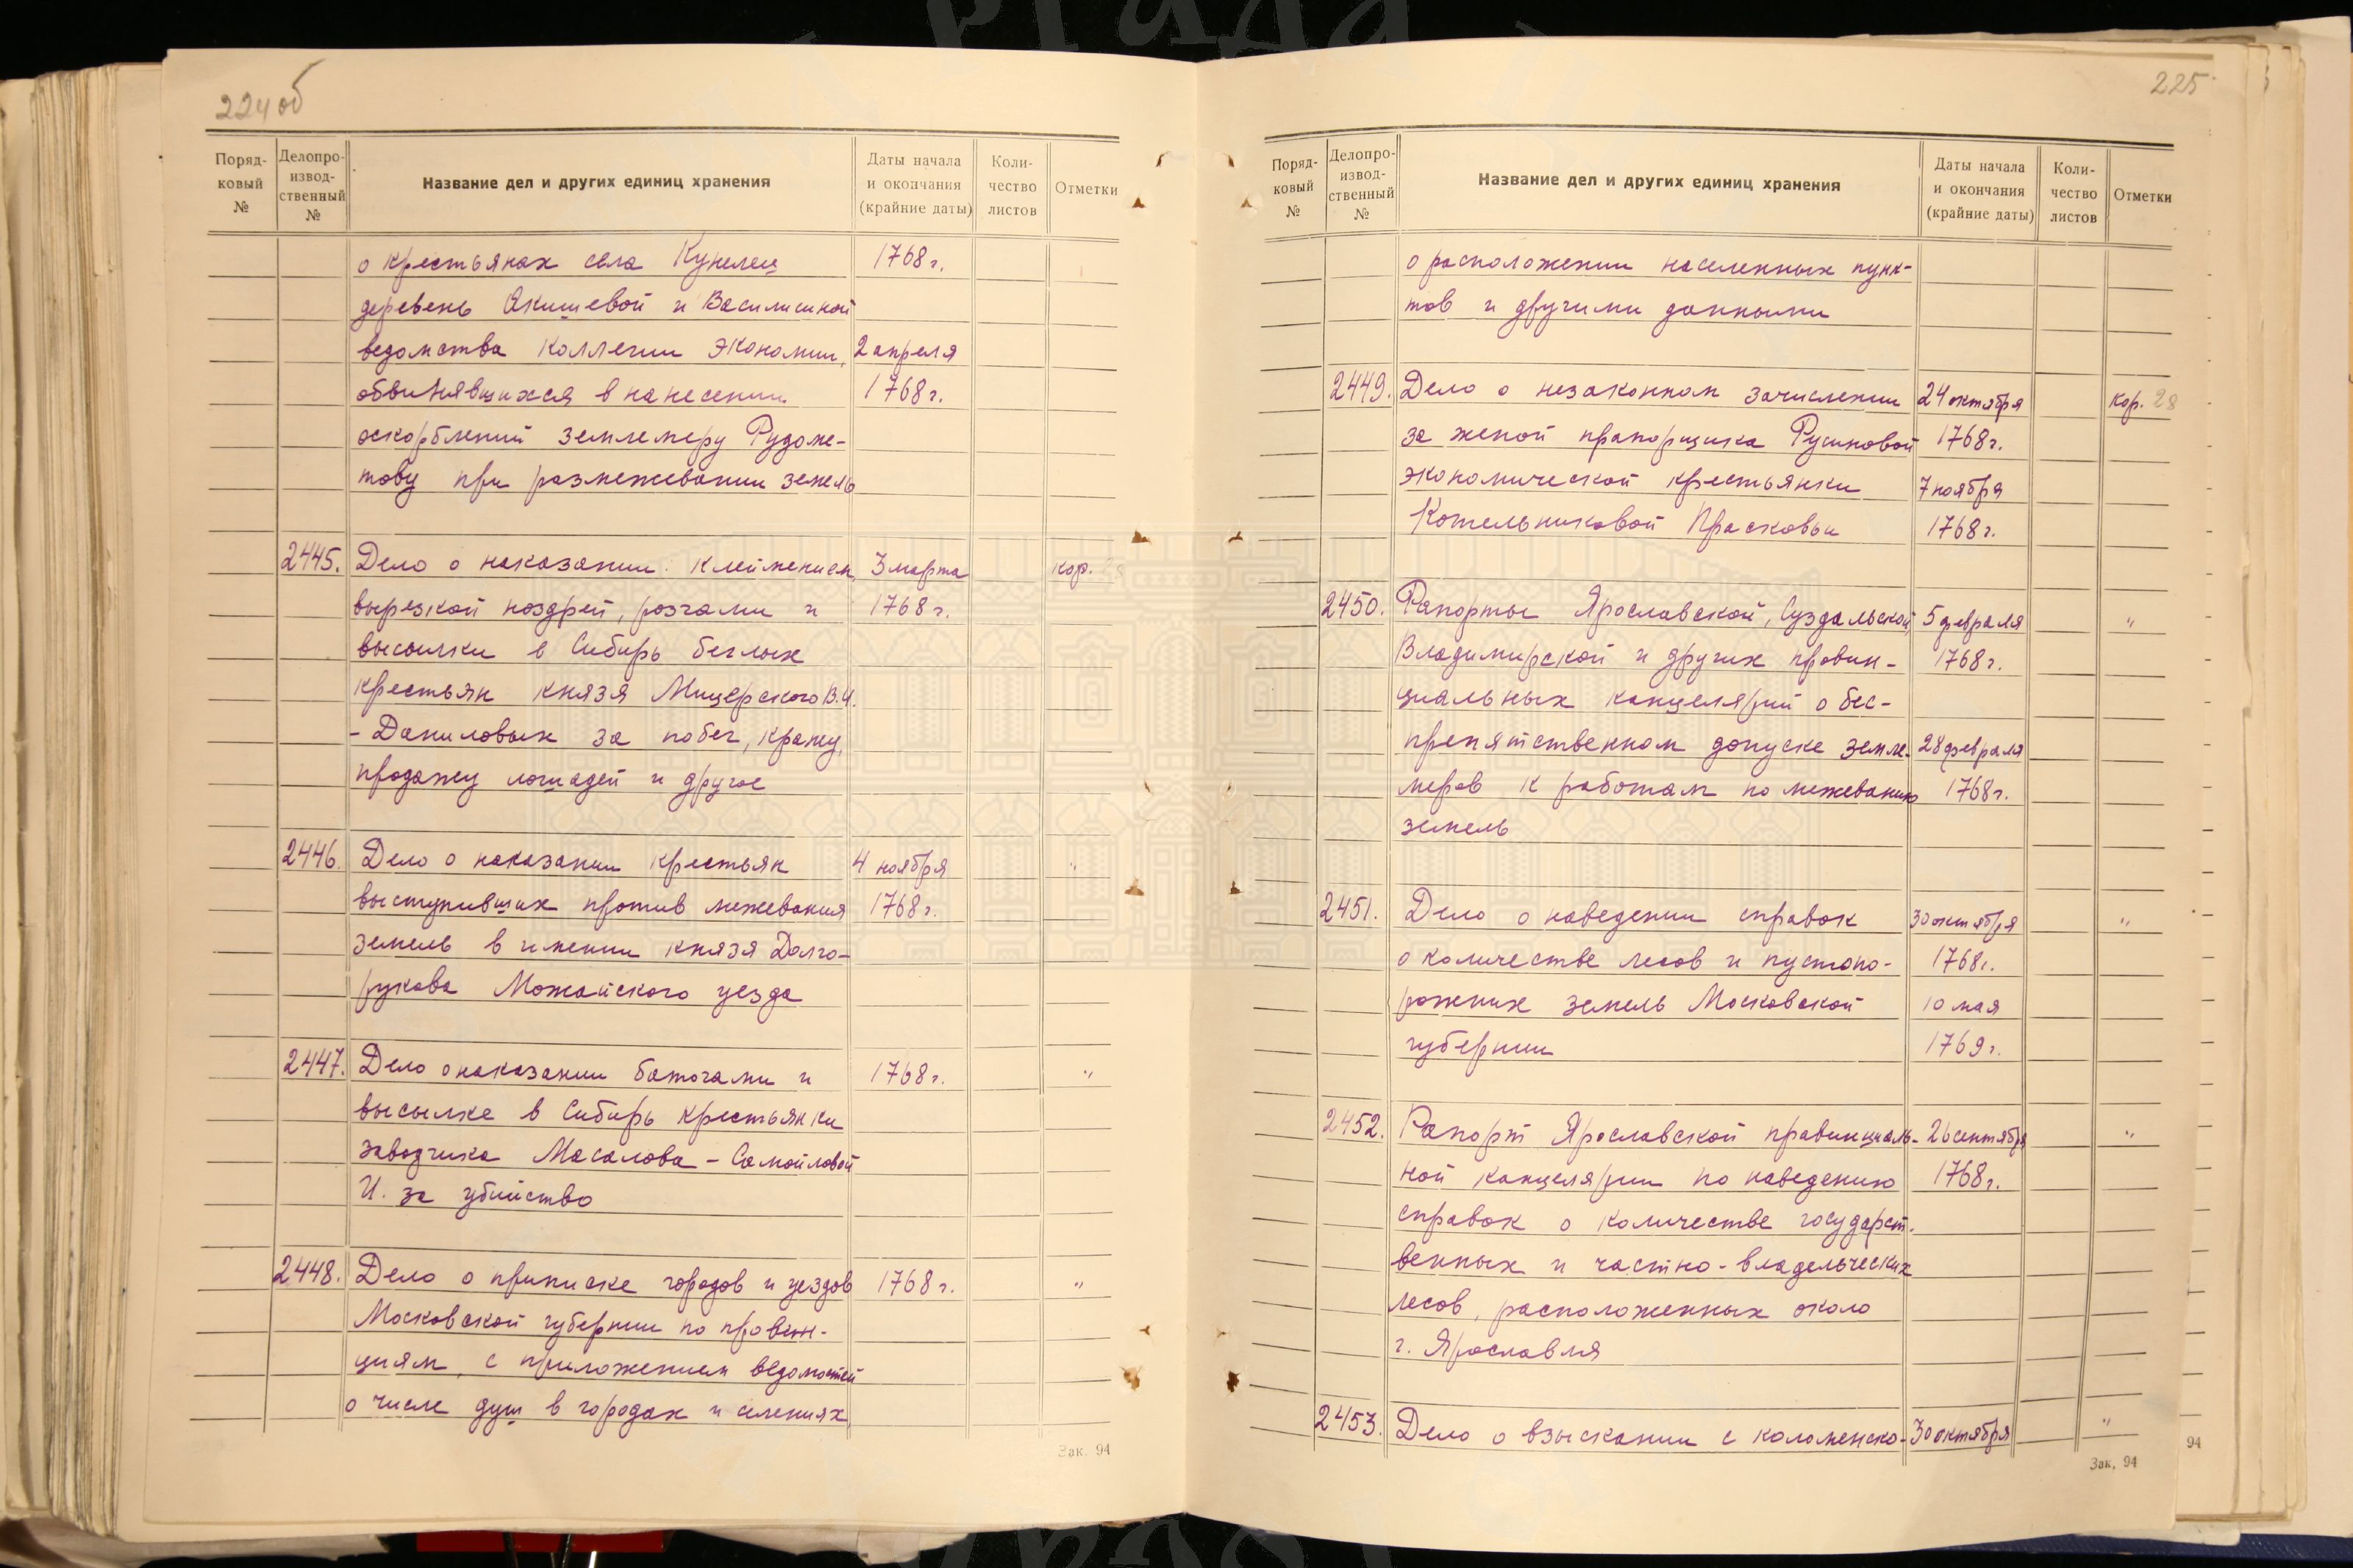 224 об
Поряд-
ковый
№
Делопро-
извод-
ственный
№
Название дел и других единиц хранения
Даты начала
и окончания
(крайние даты)
Коли-
чество
листов
Отметки
о крестьянах села Кунелец 1768 г.
деревень Акишевой и Василисиной
ведомства Коллегии Экономии, 2 апреля
обвинявшихся в нанесении 1768 г.
оскорблений землемеру Рудоме-
тову при размежевании земель
2445. Дело о наказании: клеймением, 3 марта кор.
вырезкой ноздрей, розгами и 1768 г.
высылки в Сибирь беглых
крестьян князя Мищерского В.И.
- Даниловых за побег, кражу,
продажу лошадей и другое
2446. Дело о наказании крестьян 4 ноября "
выступивших против межевания 1768 г.
земель в имении князя Долго-
рукова Можайского уезда
2447. Дело о наказании батогами и 1768 г. "
высылке в Сибирь крестьянки
заводчика Масалова - Самойловой
И. за убийство
2448. Дело о приписке городов и уездов 1768 г. "
Московской губернии по провин-
циям, с приложением ведомостей
о числе душ в городах и селениях,
Зак. 94
225
Поряд-
ковый
№
Делопро-
извод-
ственный
№
Название дел и других единиц хранения
Даты начала
и окончания
(крайние даты)
Коли-
чество
листов
Отметки
о расположении населенных пунк-
тов и другими данными
2449. Дело о незаконном зачислении 24 октября кор. 28
за женой прапорщика Русиновой 1768 г.
экономической крестьянки 7 ноября
Котельниковой Прасковьи 1768 г.
2450. Рапорты Ярославской, Суздальской, 5 февраля "
Владимирской и других провин- 1768 г.
циальных канцелярий о бес-
препятственном допуске земле- 28 февраля
меров к работам по межеванию 1768 г.
земель
2451. Дело о наведении справок 30 октября "
о количестве лесов и пустопо- 1768 г.
рожних земель Московской 10 мая
губернии 1769 г.
2452. Рапорт Ярославской провинциаль- 26 сентября "
ной канцелярии по наведению 1768 г.
справок о количестве государст-
венных и частно-владельческих
лесов, расположенных около
г. Ярославля
2453. Дело о взыскании с коломенско- 30 октября "
Зак. 94
94